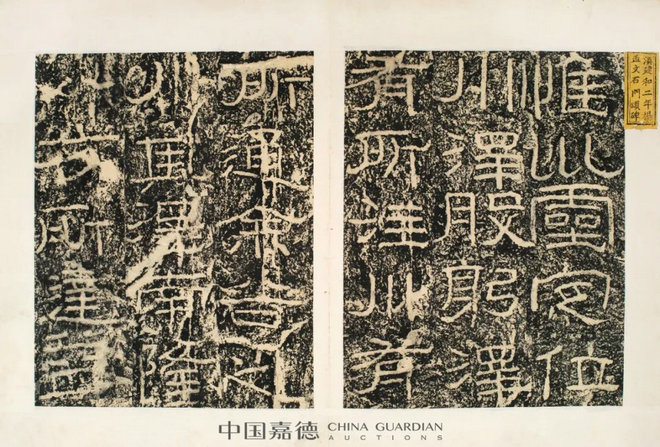 漢建和二年楊
孟文石門頌碑
惟巛靈定位
川澤股躬澤
有所注川有
所通余谷之
川其澤南隆
方所達益
中国嘉德 CHINA GUARDIAN
AUCTIONS